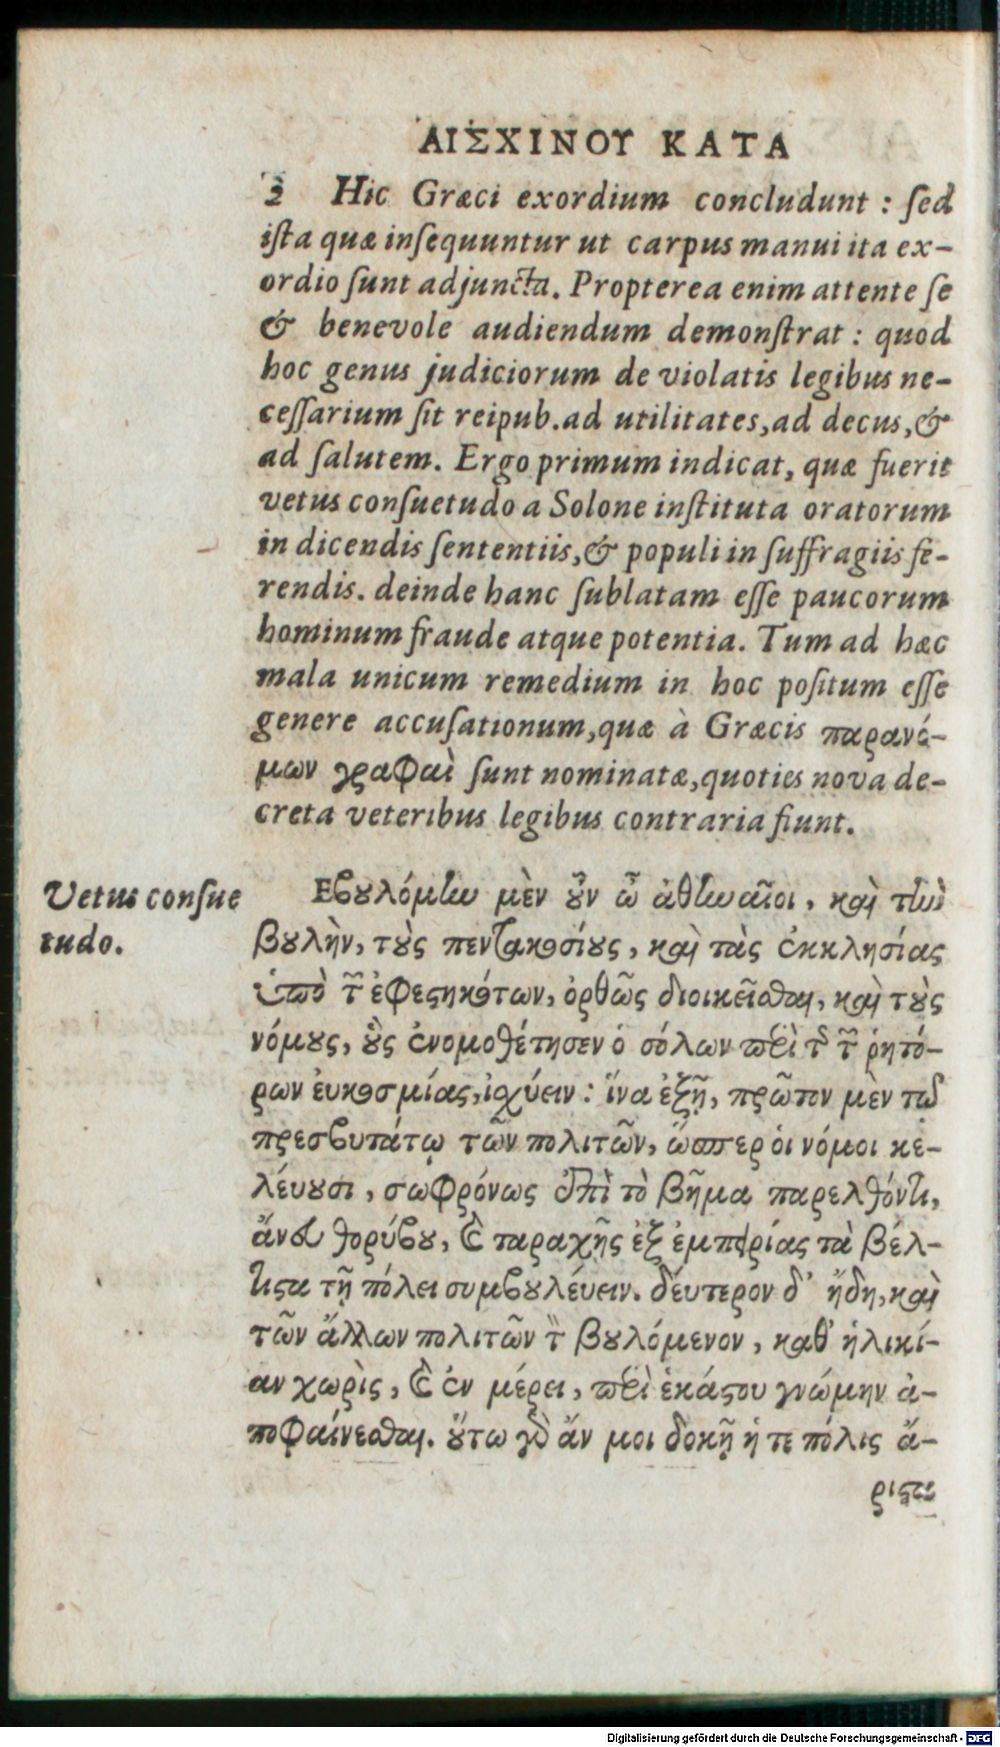 ΑΙΣΧΙΝΟΥ ΚΑΤΑ
2 Hic Græci exordium concludunt : ſed
iſta quæ inſequuntur ut carpus manui ita ex-
ordio ſunt adjuncta. Propterea enim attente ſe
& benevole audiendum demonſtrat : quod
hoc genus judiciorum de violatis legibus ne-
ceſſarium ſit reipub. ad utilitates, ad decus, &
ad ſalutem. Ergo primum indicat, quæ fuerit
vetus conſuetudo a Solone inſtituta oratorum
in dicendis ſententiis, & populi in ſuffragiis fe-
rendis. deinde hanc ſublatam eſſe paucorum
hominum fraude atque potentia. Tum ad hæc
mala unicum remedium in hoc poſitum eſſe
genere accuſationum, quæ à Græcis παρανό-
μων γραφαὶ ſunt nominatæ, quoties nova de-
creta veteribus legibus contraria fiunt.
Vetus conſue
tudo.
Εβουλόμην μὲν οὖν ὦ ἀθηναῖοι, καὶ τὴν
βουλὴν, τοὺς πεντακοσίους, καὶ τὰς ἐκκλησίας
ὑπὸ τῶν ἐφεστηκότων, ὀρθῶς διοικεῖσθαι, καὶ τοὺς
νόμους, οὓς ἐνομοθέτησεν ὁ σόλων περὶ τῆς τῶν ῥητό-
ρων ἐυκοσμίας, ἰσχύειν : ἵνα ἐξῇ, πρῶτον μὲν τῷ
πρεσβυτάτῳ τῶν πολιτῶν, ὥσπερ οἱ νόμοι κε-
λέυουσι, σωφρόνως ἐπὶ τὸ βῆμα παρελθόντι,
ἄνευ θορύβου, καὶ ταραχῆς ἐξ ἐμπειρίας τὰ βέλ-
τιστα τῇ πόλει συμβουλέυειν. δέυτερον δ' ἤδη, καὶ
τῶν ἄλλων πολιτῶν τὸν βουλόμενον, καθ' ἡλικί-
αν χωρὶς, καὶ ἐν μέρει, περὶ ἑκάστου γνώμην ἀ-
ποφαίνεσθαι. οὕτω γὰρ ἄν μοι δοκῇ ἥ τε πόλις ἄ-
ριστα
Digitalisierung gefördert durch die Deutsche Forschungsgemeinschaft - DFG